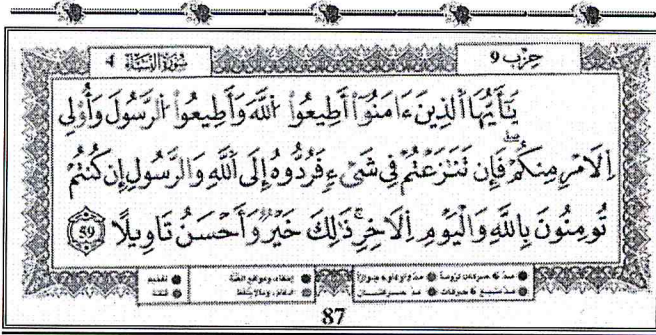 حِزْب 9
سُورَةُ النِّسَاءِ 4
يَٰٓأَيُّهَا اَ۬لذِينَ ءَامَنُوٓاْ أَطِيعُواْ اُ۬للَّهَ وَأَطِيعُواْ اُ۬لرَّسُولَ وَأُوْلِے
اِ۬لَامْرِ مِنكُمْۖ فَإِن تَنَٰزَعْتُمْ فِے شَےْءٖ فَرُدُّوهُ إِلَى اَ۬للَّهِ وَالرَّسُولِ إِن كُنتُمْ
تُومِنُونَ بِاللَّهِ وَالْيَوْمِ اِ۬لَاخِرِۖ ذَٰلِكَ خَيْرٞ وَأَحْسَنُ تَاوِيلًا 59
87